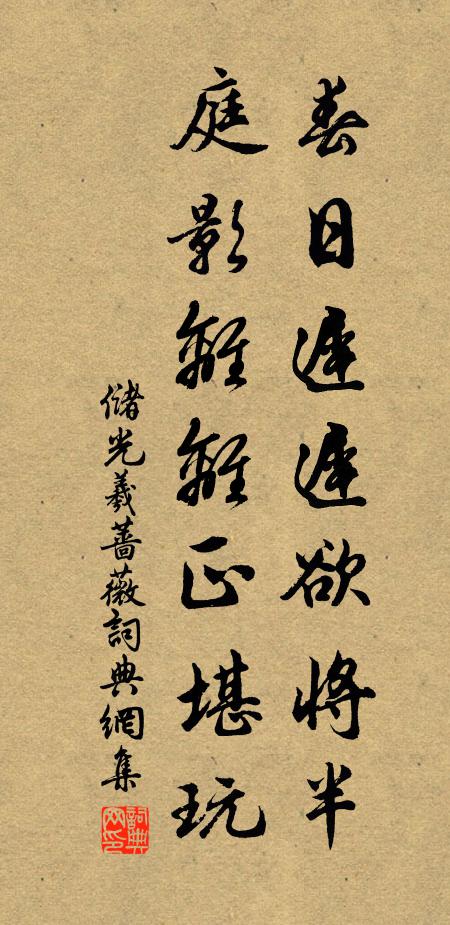 春日遲遲欲將半
庭影離離正堪玩
儲光羲薔薇詞典網集
詞典網印